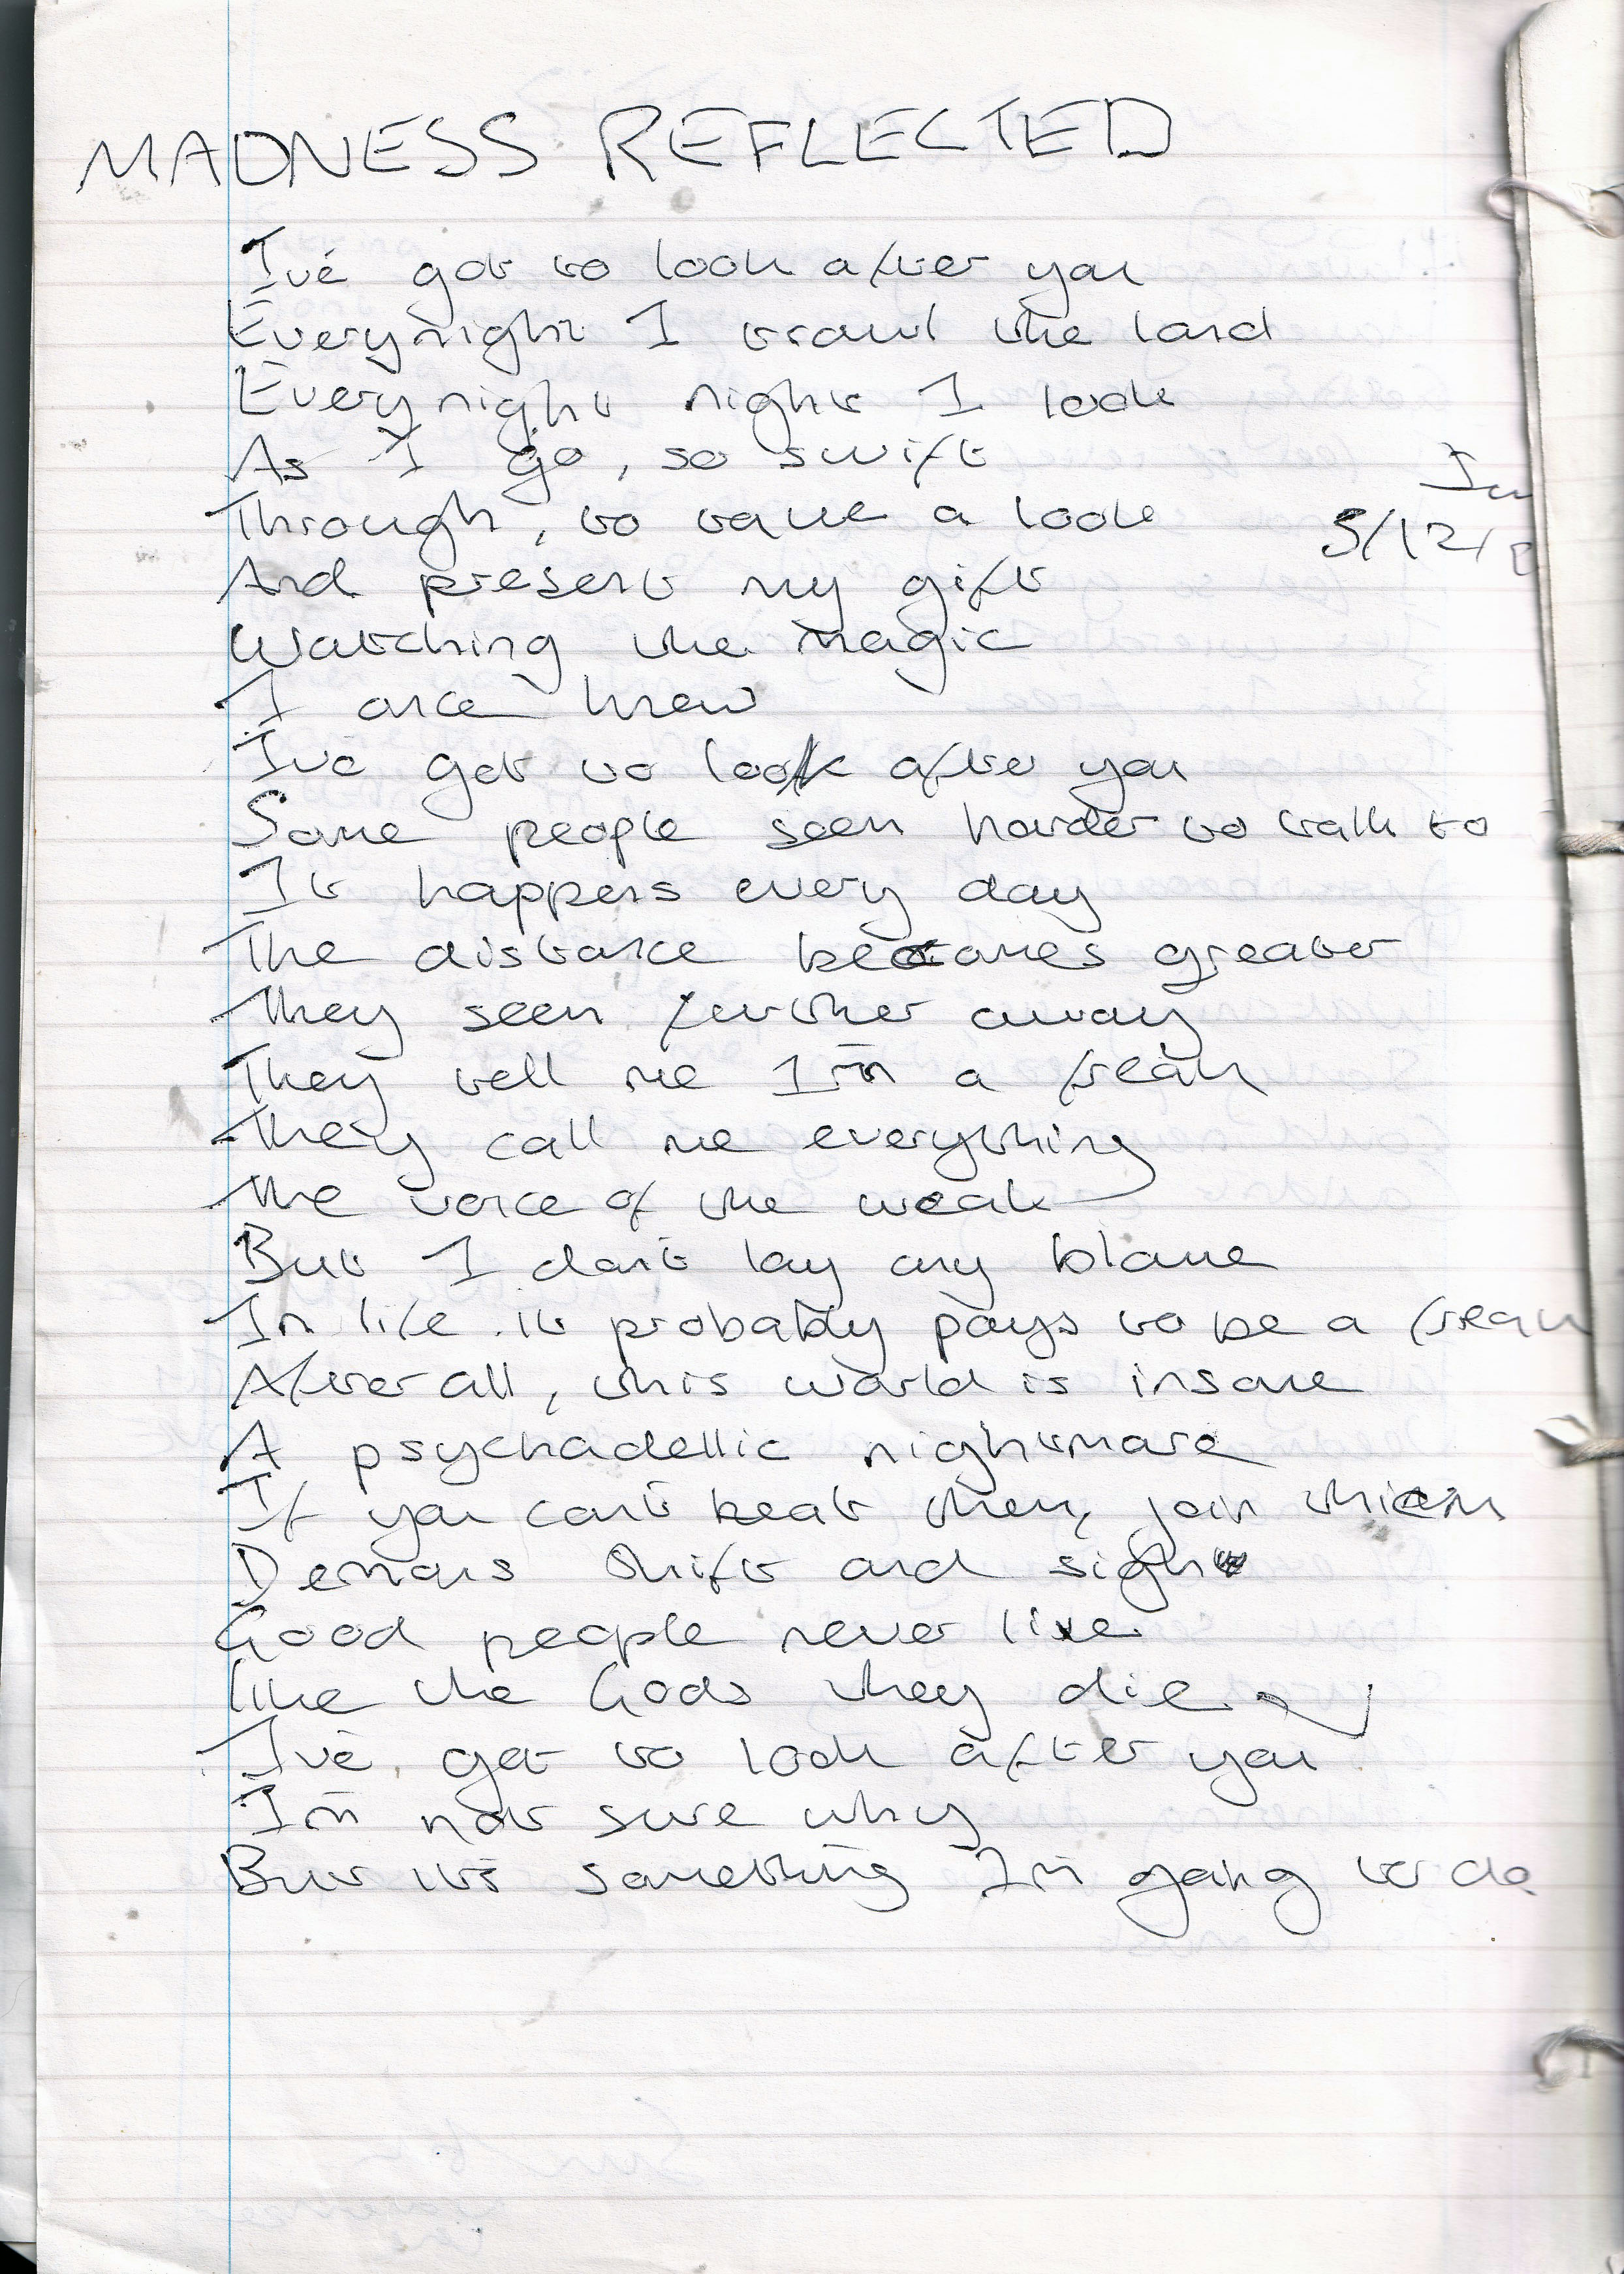 MADNESS REFLECTED
I've got to look after you
Everynight I trawl the land
Everynight night I look
As I go, so swift
Through, to take a look
5/12/
And present my gift
Watching the magic
I once knew
I've got to look after you
Some people seem harder to talk to
It happens every day
The distance becomes greater
They seem further away
They tell me I'm a freak
They call me everything
The voice of the weak
But I don't lay any blame
In life it probably pays to be a freak
After all, this world is insane
A psychadellic nightmare
If you can't beat them, join them
Demons shift and sigh
Good people never live
like the Gods they die
I've got to look after you
I'm not sure why
But it's something I'm going to do